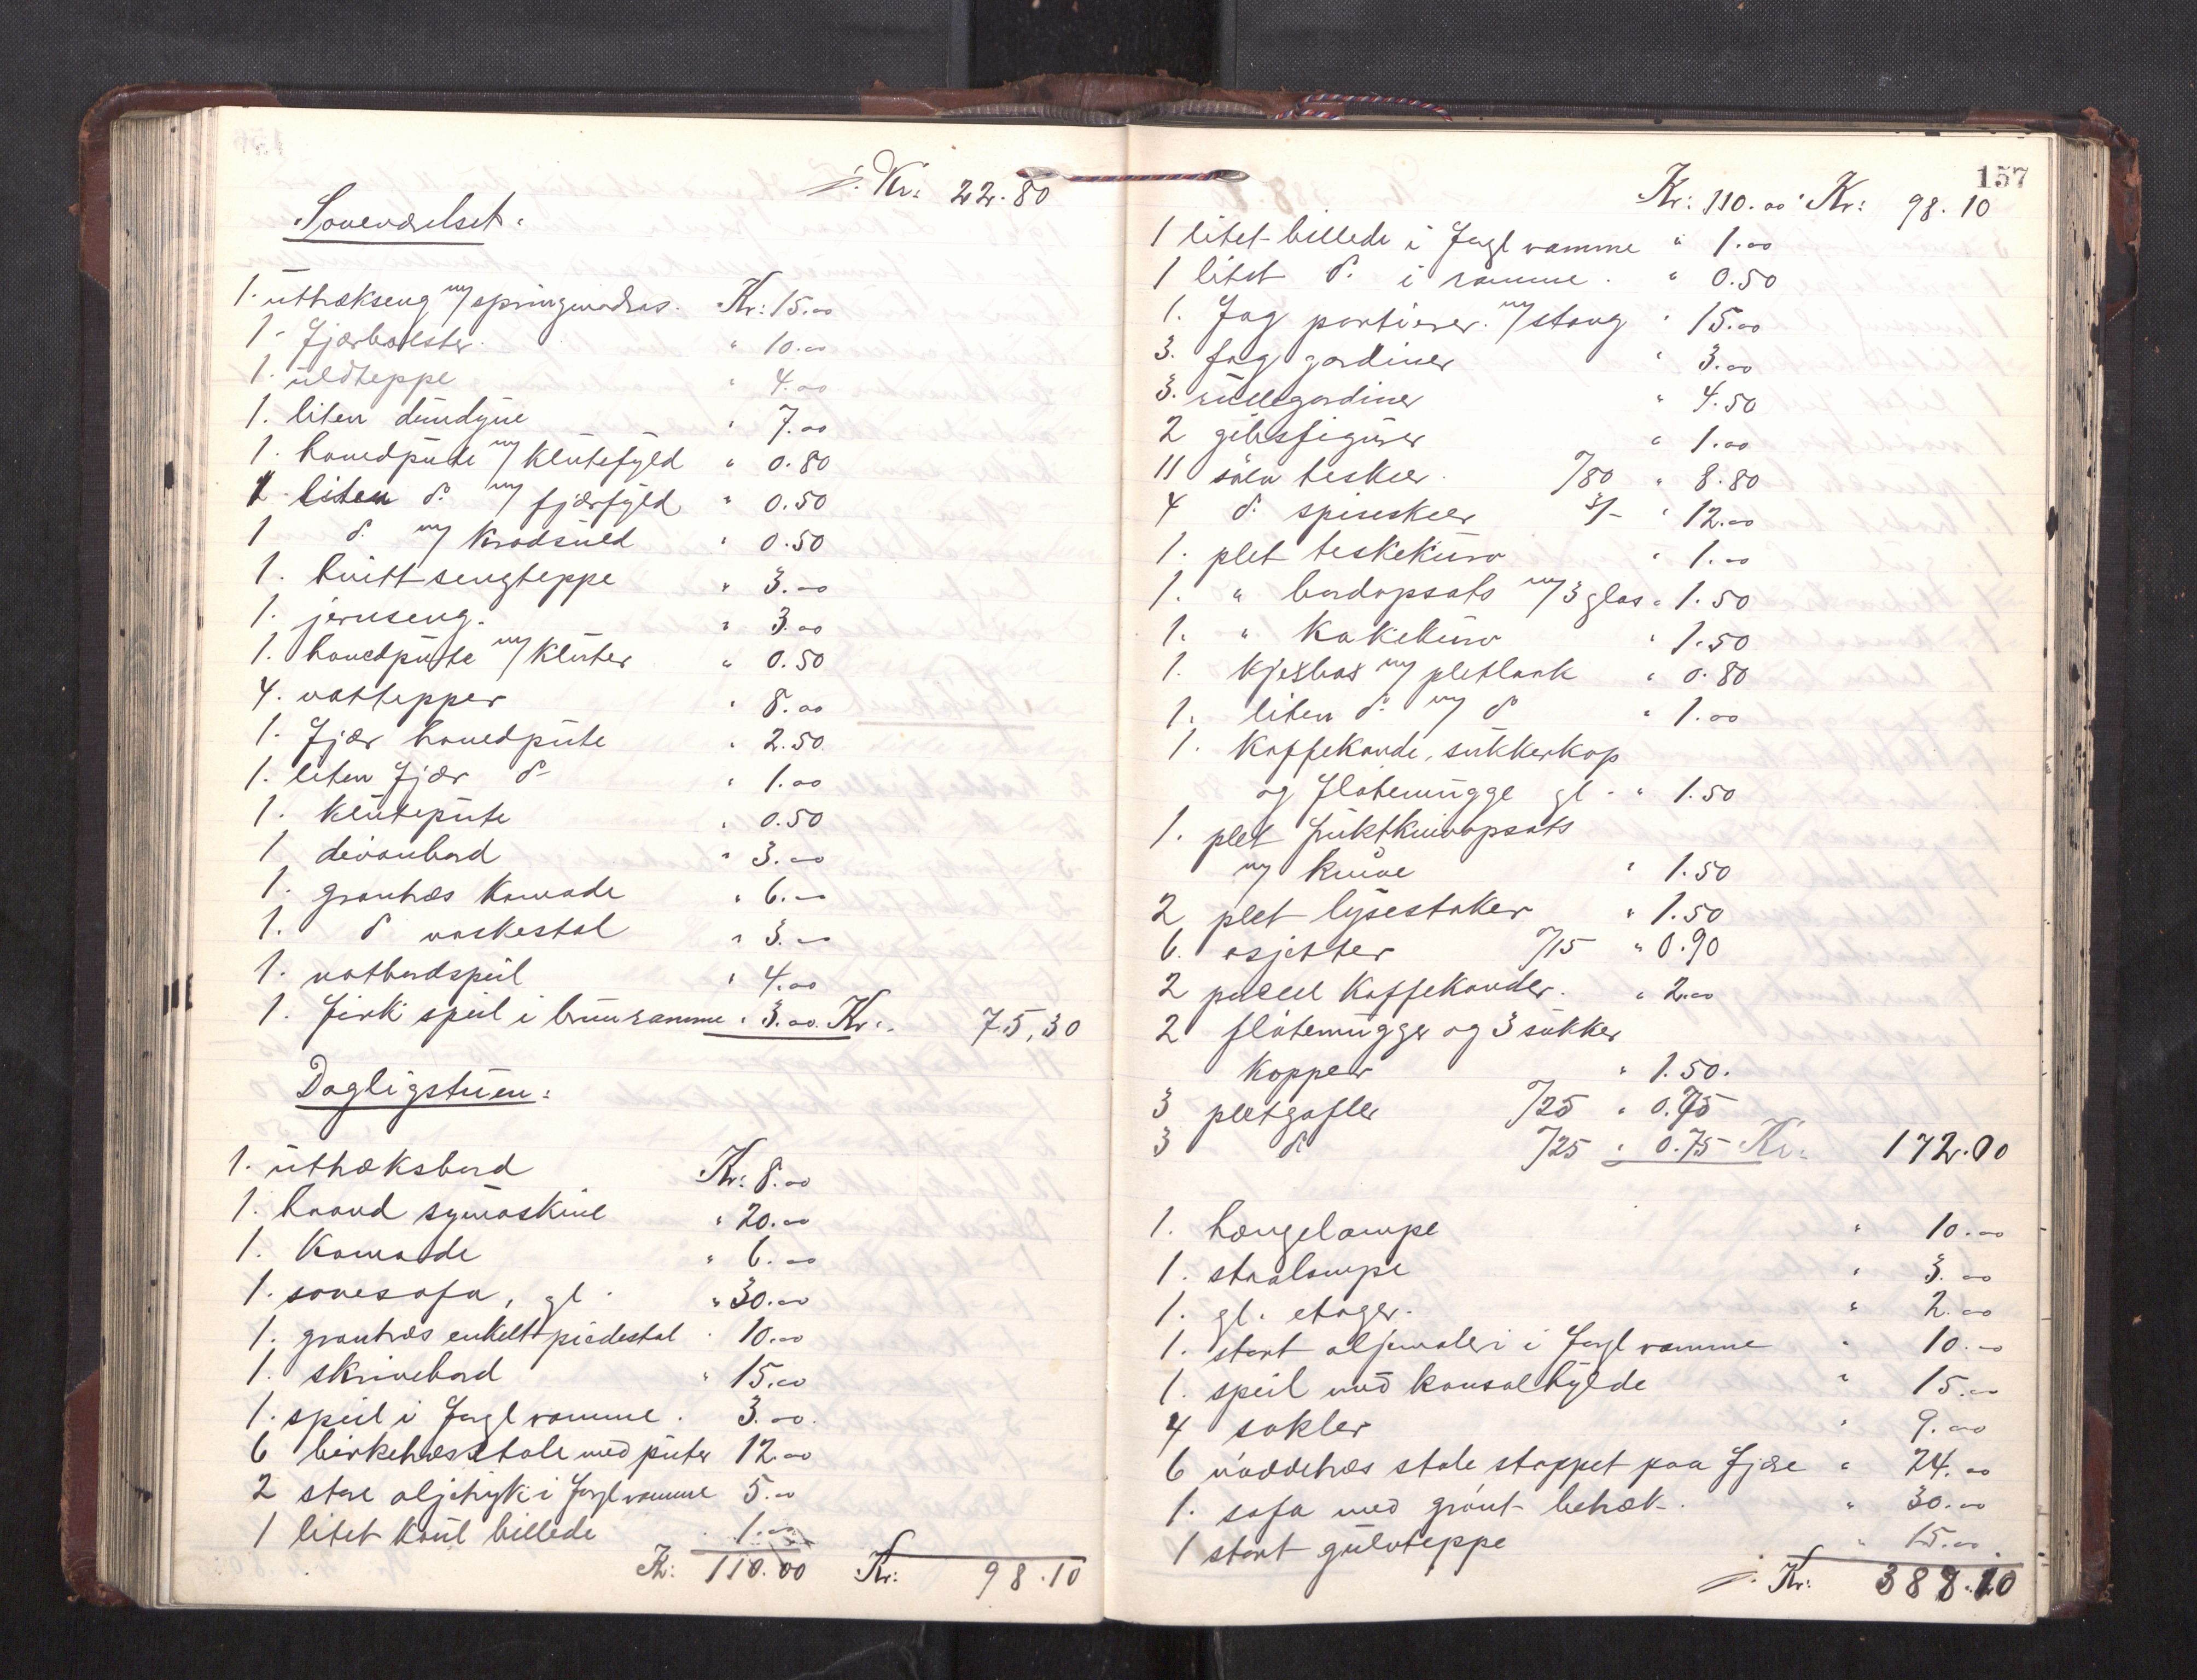 Kr: 22.80
Soveværelset:
1. uttrækseng m/springmadras. Kr: 15.00
1. Fjærbolster. " 10.00
1. uldteppe " 4.00
1. liten dundyne " 7.00
1. hovedpute m/klutefyld " 0.80
1 liten do m/ fjærfyld " 0.50
1 do m/ Kradsuld " 0.50
1. hvitt sengteppe " 3.00
1. jernseng. " 3.00
1. hovedpute m/kluter " 0.50
4. vattepper " 8.00
1. Fjær hovedpute " 2.50
1. liten Fjær do " 1.00
1. klutepute " 0.50
1 divanbord " 3.00
1. grantræs Komode " 6.00
1. do vaskestol " 3.00
1. natbordspeil " 4.00
1. Firk. speil i brun ramme " 3.00. Kr: 75,30
Dagligstuen:
1. uttræksbord Kr: 8.00
1. haand symaskine " 20.00
1. Komode " 6.00
1. sovesofa, gl. " 30.00
1. grantræs enkelt piedestal " 10.00
1. skrivebord " 15.00
1. speil i Forgl ramme. 3.00.
6 birketræs stole med puter 12.00
2 store oljetryk i Forgl ramme 5.00
1 litet koul billede 1.00
Kr: 110.00 Kr: 98.10
157
Kr: 110.00 Kr: 98.10
1 litet billede i Forgl ramme " 1.00
1 litet do i ramme. " 0.50
1. Fag portierer. m/stang " 15.00
3. fag gardiner " 3.00
3. rullegardiner " 4.50
2 gibsfigurer " 1.00
11 sølv teskeer. /80 " 8.80
4 do spiseskeer 3/- " 12.00
1. plet teskekurv " 1.00
1. " bordopsats m/3 glas " 1.50
1. " Kakekurv " 1.50
1. Kjexbox m/ pletlaak " 0.80
1. liten do m/ do " 1.00
1. Kaffekande, sukkerkop
og fløtemugge gl. " 1.50
1. plet fruktknivopsats
m/ knive " 1.50
2 plet lysestaker " 1.50
6. asjetter /15 " 0.90
2 porcel Kaffekander. " 2.00
2 fløtemugger og 3 sukker
Kopper " 1.50.
3 pletgafler /25 " 0.75
3 do /25 " 0.75 Kr: 172.00
1. hængelampe " 10.00
1. staalampe " 3.00
1. gl. etager. " 2.00
1. stort oljemaleri i Forgl ramme " 10.00
1. speil med konsolhylde " 15.00
4 sokler " 9.00
6 nøddetræs stole stoppet paa Fjære " 24.00
1. sofa med grønt betræk. " 30.00
1 stort gulvteppe " 15.00.
Kr: 388.10